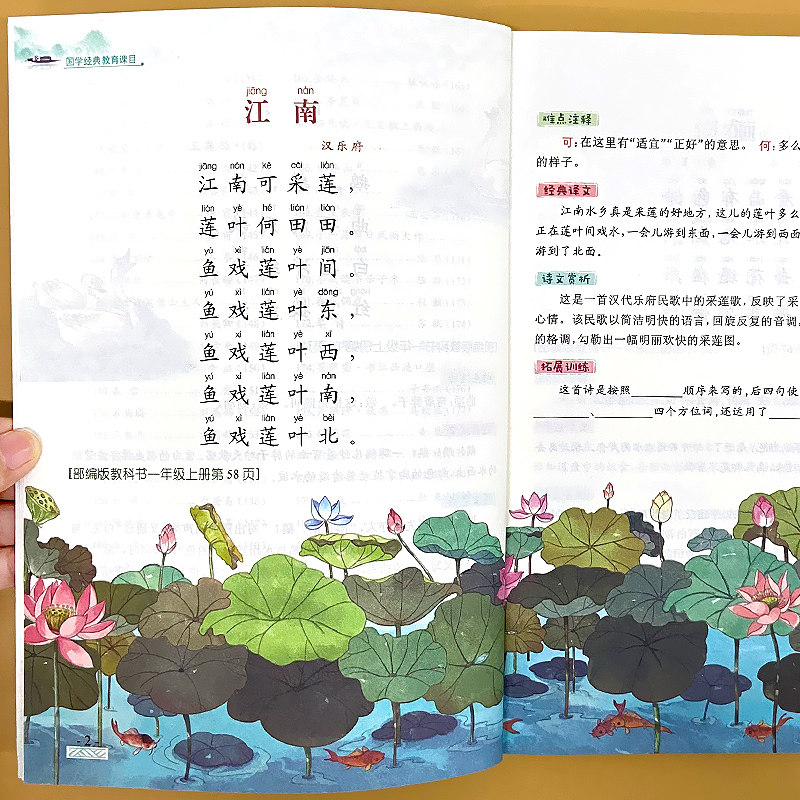 国学经典教育课目
jiāng nán
江南
汉乐府
jiāng nán kě cǎi lián
江南可采莲，
lián yè hé tián tián
莲叶何田田。
yú xì lián yè jiān
鱼戏莲叶间。
yú xì lián yè dōng
鱼戏莲叶东，
yú xì lián yè xī
鱼戏莲叶西，
yú xì lián yè nán
鱼戏莲叶南，
yú xì lián yè běi
鱼戏莲叶北。
[部编版教科书一年级上册第58页]
2
难点注释
可：在这里有“适宜”“正好”的意思。 何：多么
的样子。
经典译文
江南水乡真是采莲的好地方，这儿的莲叶多么
正在莲叶间戏水，一会儿游到东面，一会儿游到西面
游到了北面。
诗文赏析
这是一首汉代乐府民歌中的采莲歌，反映了采
心情。该民歌以简洁明快的语言，回旋反复的音调，
的格调，勾勒出一幅明丽欢快的采莲图。
拓展训练
这首诗是按照________顺序来写的，后四句使
________、________四个方位词，还运用了____